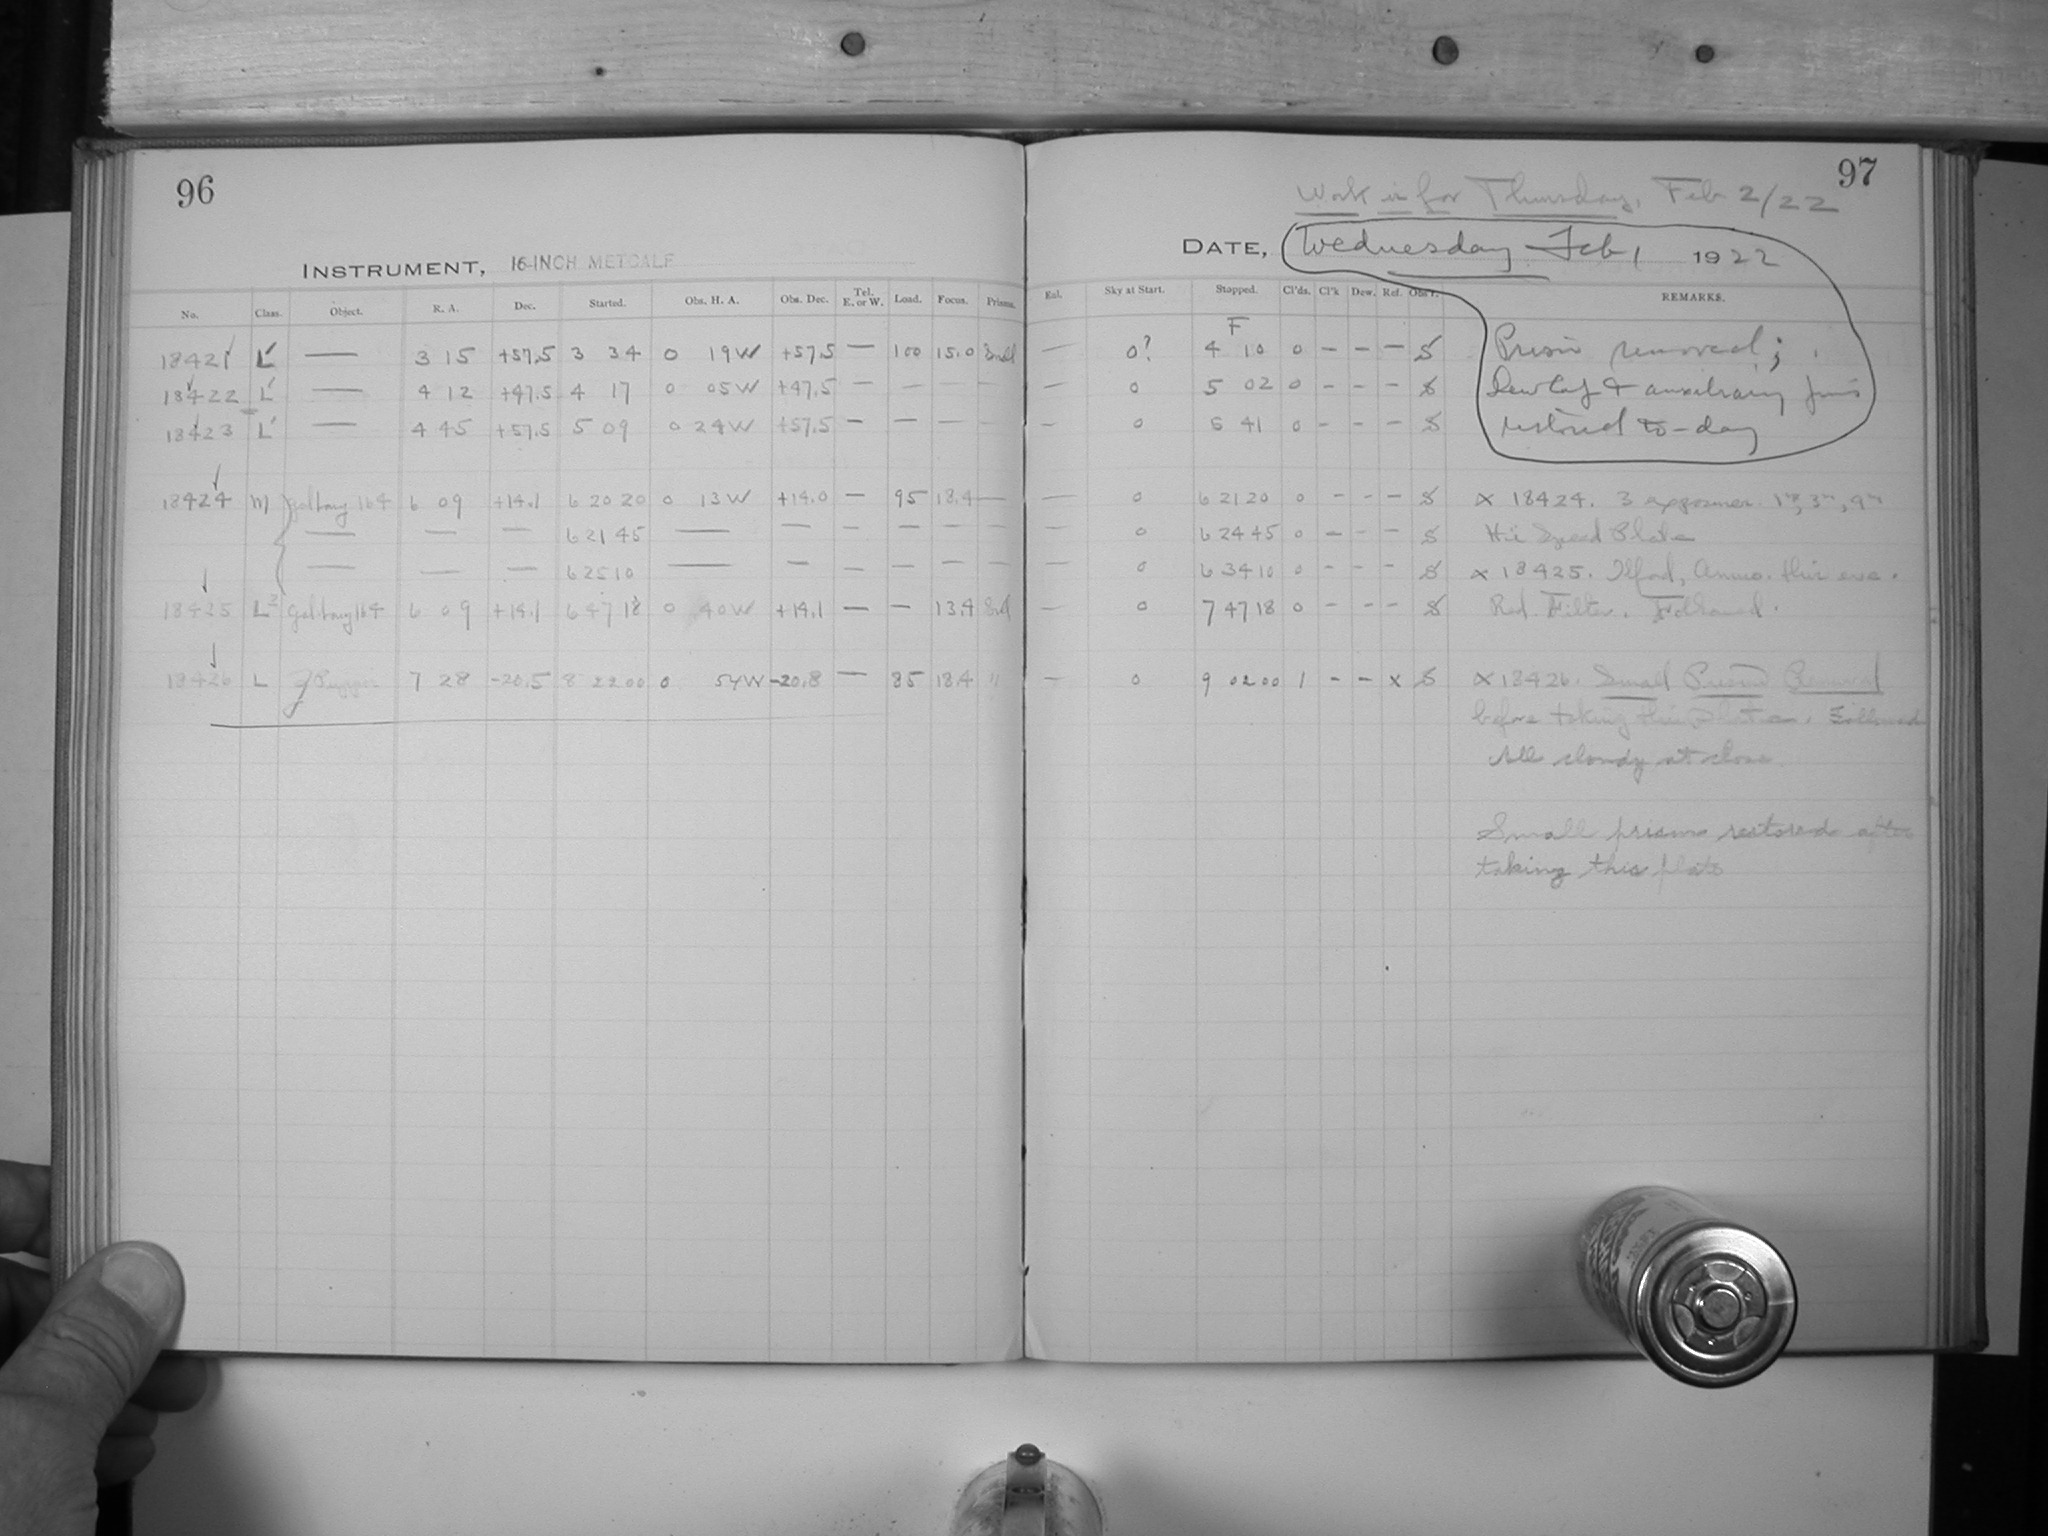 96
INSTRUMENT, 16-INCH METCALF
No. Class. Object. R. A. Dec. Started. Obs. H. A. Obs. Dec. Tel. E. or W. Load. Focus. Prisms.
18421 L — 3 15 +57.5 3 34 0 19W +57.5 — 100 15.0 Small
18422 L — 4 12 +47.5 4 17 0 05W +47.5 — — — —
18423 L — 4 45 +57.5 5 09 0 24W +57.5 — — — —
18424 M 164 6 09 +14.1 6 20 20 0 13W +14.0 — 95 18.4 —
— — — 6 21 45 — — — — — —
— — — 6 25 10 — — — — — —
18425 L2 164 6 09 +14.1 6 47 18 0 40W +14.1 — — 13.4
18426 L 7 28 -20.5 8 22 00 0 54W -20.8 — 85 18.4 "
97
Work is for Thursday, Feb 2/22
DATE, Wednesday Feb 1 1922
Exl. Sky at Start. Stopped. Cl'ds. Cl'k Dew. Ref. Obs'r. REMARKS.
F
— 0? 4 10 0 - - - S Prism removed;
— 0 5 02 0 - - - S Dew Cap + auxiliary
— 0 5 41 0 - - - S restored to-day
— 0 6 21 20 0 - - - S x 18424. 3 exposures. 1m, 3m, 9m
0 6 24 45 0 - - - S Hi Speed Plate
0 6 34 10 0 - - - S x 18425. Ilford, Ammo. this eve.
— 0 7 47 18 0 - - - S Red Filter. Followed.
— 0 9 02 00 1 - - x S x 18426. Small Prism Removed
before taking this plate. Followed
All cloudy at close
Small prism restored after
taking this plate